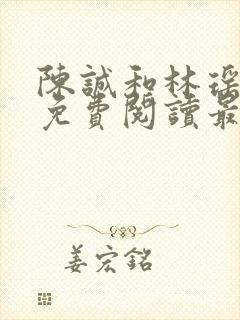 陳誠和林瑤
免費閱讀最
姜宏銘